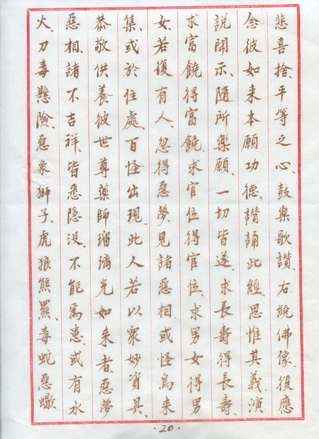 悲喜捨、平等之心、鼓樂歌讚、右繞佛像、復應
念彼如來本願功德、讀誦此經、思惟其義、演
說開示、隨所樂願、一切皆遂、求長壽得長壽、
求富饒得富饒、求官位得官位、求男女得男
女、若復有人、忽得惡夢、見諸惡相、或怪鳥來
集、或於住處、百怪出現、此人若以眾妙資具、
恭敬供養彼世尊藥師瑠璃光如來者、惡夢
惡相、諸不吉祥、皆悉隱沒、不能為患、或有水
火、刀、毒、懸險、惡象、獅子、虎、狼、熊、羆、毒蛇、惡蠍
·20·